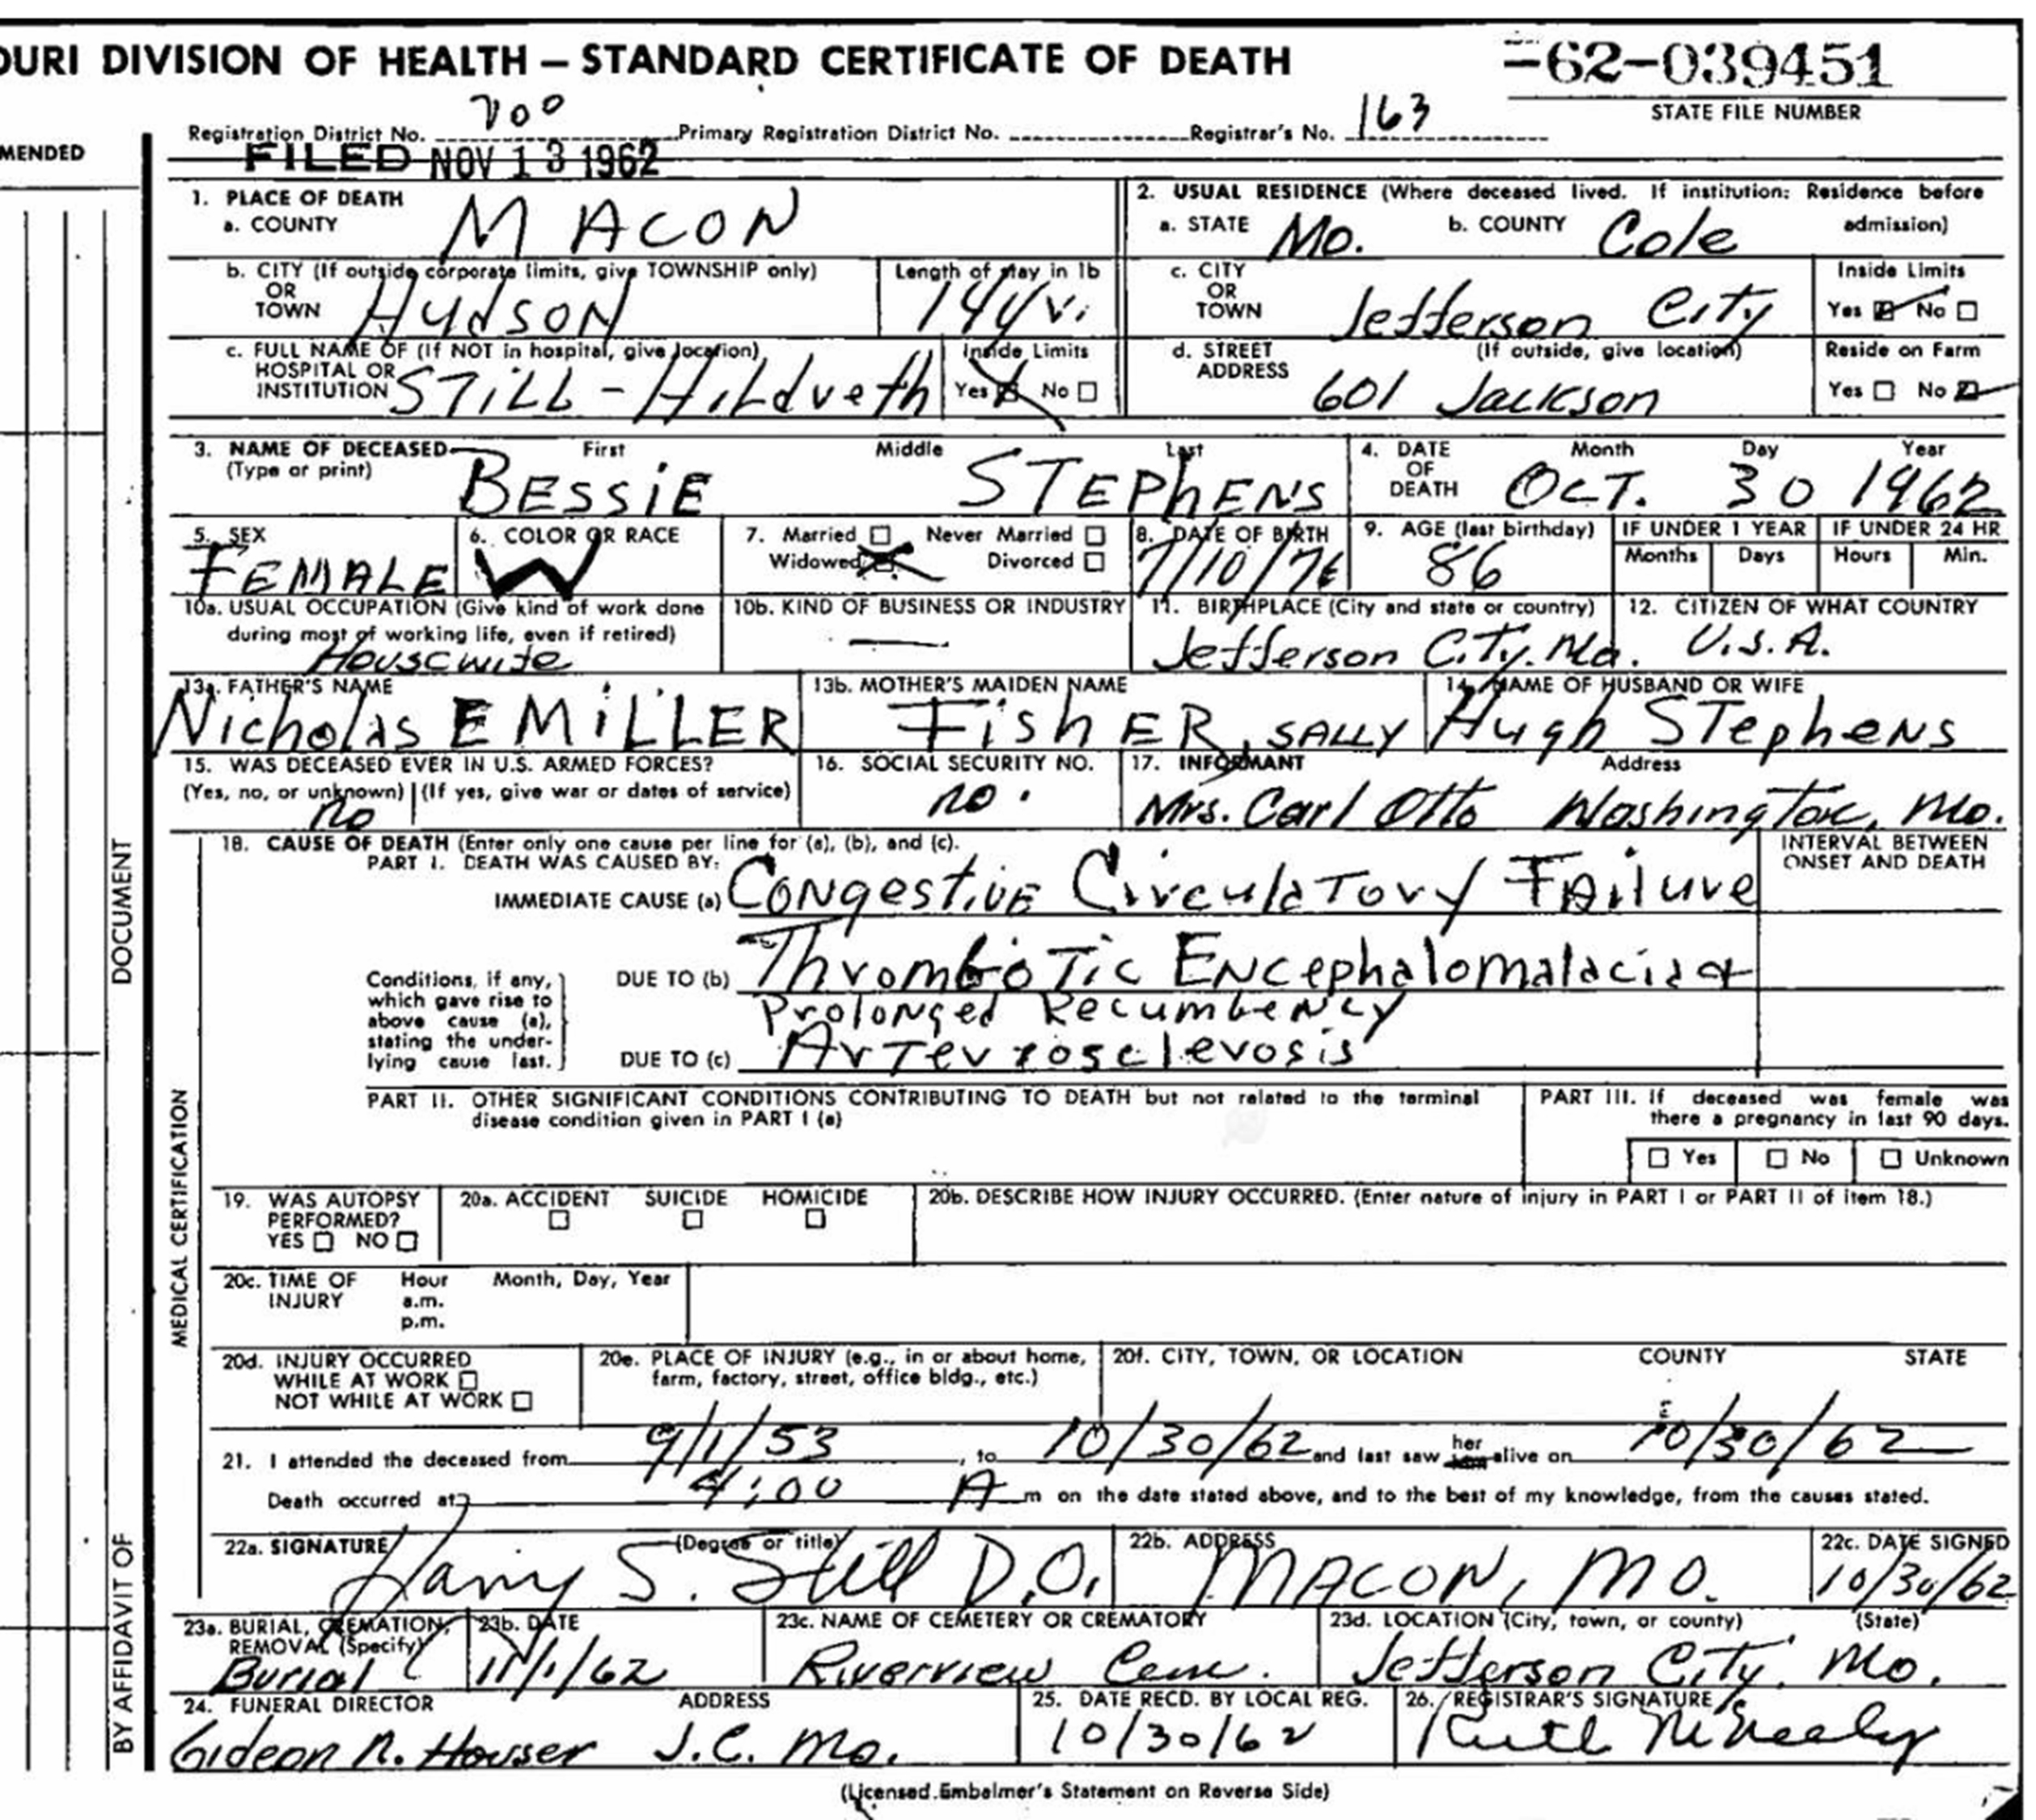 OURI DIVISION OF HEALTH — STANDARD CERTIFICATE OF DEATH
-62-039451
STATE FILE NUMBER
Registration District No. 700 Primary Registration District No. Registrar's No. 163
MENDED
FILED NOV 13 1962
1. PLACE OF DEATH
a. COUNTY MACON
2. USUAL RESIDENCE (Where deceased lived. If institution: Residence before admission)
a. STATE Mo. b. COUNTY Cole
b. CITY (If outside corporate limits, give TOWNSHIP only) OR TOWN Hudson
Length of stay in 1b 14 yr.
c. CITY OR TOWN Jefferson City
Inside Limits Yes No
c. FULL NAME OF (If NOT in hospital, give location) HOSPITAL OR INSTITUTION STILL - Hildreth
Inside Limits Yes No
d. STREET ADDRESS (If outside, give location) 601 Jackson
Reside on Farm Yes No
3. NAME OF DECEASED (Type or print) First Middle Last
BESSIE STEPhENS
4. DATE OF DEATH Month Day Year
OCT. 30 1962
5. SEX FEMALE
6. COLOR OR RACE W
7. Married Never Married Widowed Divorced
8. DATE OF BIRTH 7/10/76
9. AGE (last birthday) 86
IF UNDER 1 YEAR Months Days
IF UNDER 24 HR Hours Min.
10a. USUAL OCCUPATION (Give kind of work done during most of working life, even if retired) Housewife
10b. KIND OF BUSINESS OR INDUSTRY —
11. BIRTHPLACE (City and state or country) Jefferson City. Mo.
12. CITIZEN OF WHAT COUNTRY U.S.A.
13a. FATHER'S NAME Nicholas E MILLER
13b. MOTHER'S MAIDEN NAME FishER, SALLY
14. NAME OF HUSBAND OR WIFE Hugh STephENS
15. WAS DECEASED EVER IN U.S. ARMED FORCES?
(Yes, no, or unknown) (If yes, give war or dates of service) no
16. SOCIAL SECURITY NO. no.
17. INFORMANT Address
Mrs. Carl Otto Washington, Mo.
18. CAUSE OF DEATH (Enter only one cause per line for (a), (b), and (c).
INTERVAL BETWEEN ONSET AND DEATH
PART I. DEATH WAS CAUSED BY:
IMMEDIATE CAUSE (a) CONgestivE CirculaTory FAilure
Conditions, if any, which gave rise to above cause (a), stating the underlying cause last.
DUE TO (b) ThromboTic ENcephalomalacia &
Prolonged Recumbency
DUE TO (c) ArTeriosclerosis
PART II. OTHER SIGNIFICANT CONDITIONS CONTRIBUTING TO DEATH but not related to the terminal disease condition given in PART I (a)
PART III. If deceased was female was there a pregnancy in last 90 days.
Yes No Unknown
19. WAS AUTOPSY PERFORMED? YES NO
20a. ACCIDENT SUICIDE HOMICIDE
20b. DESCRIBE HOW INJURY OCCURRED. (Enter nature of injury in PART I or PART II of item 18.)
20c. TIME OF INJURY Hour a.m. p.m. Month, Day, Year
20d. INJURY OCCURRED WHILE AT WORK NOT WHILE AT WORK
20e. PLACE OF INJURY (e.g., in or about home, farm, factory, street, office bldg., etc.)
20f. CITY, TOWN, OR LOCATION COUNTY STATE
21. I attended the deceased from 9/1/53, to 10/30/62 and last saw her him alive on 10/30/62
Death occurred at 4:00 A m on the date stated above, and to the best of my knowledge, from the causes stated.
22a. SIGNATURE (Degree or title) Harry S. Still D.O.
22b. ADDRESS MACON, MO.
22c. DATE SIGNED 10/30/62
23a. BURIAL, CREMATION, REMOVAL (Specify) Burial
23b. DATE 11/1/62
23c. NAME OF CEMETERY OR CREMATORY Riverview Cem.
23d. LOCATION (City, town, or county) (State) Jefferson City, Mo.
24. FUNERAL DIRECTOR ADDRESS
Gideon N. Houser J.C. Mo.
25. DATE RECD. BY LOCAL REG. 10/30/62
26. REGISTRAR'S SIGNATURE Ruth McNeely
(Licensed Embalmer's Statement on Reverse Side)
DOCUMENT
MEDICAL CERTIFICATION
BY AFFIDAVIT OF